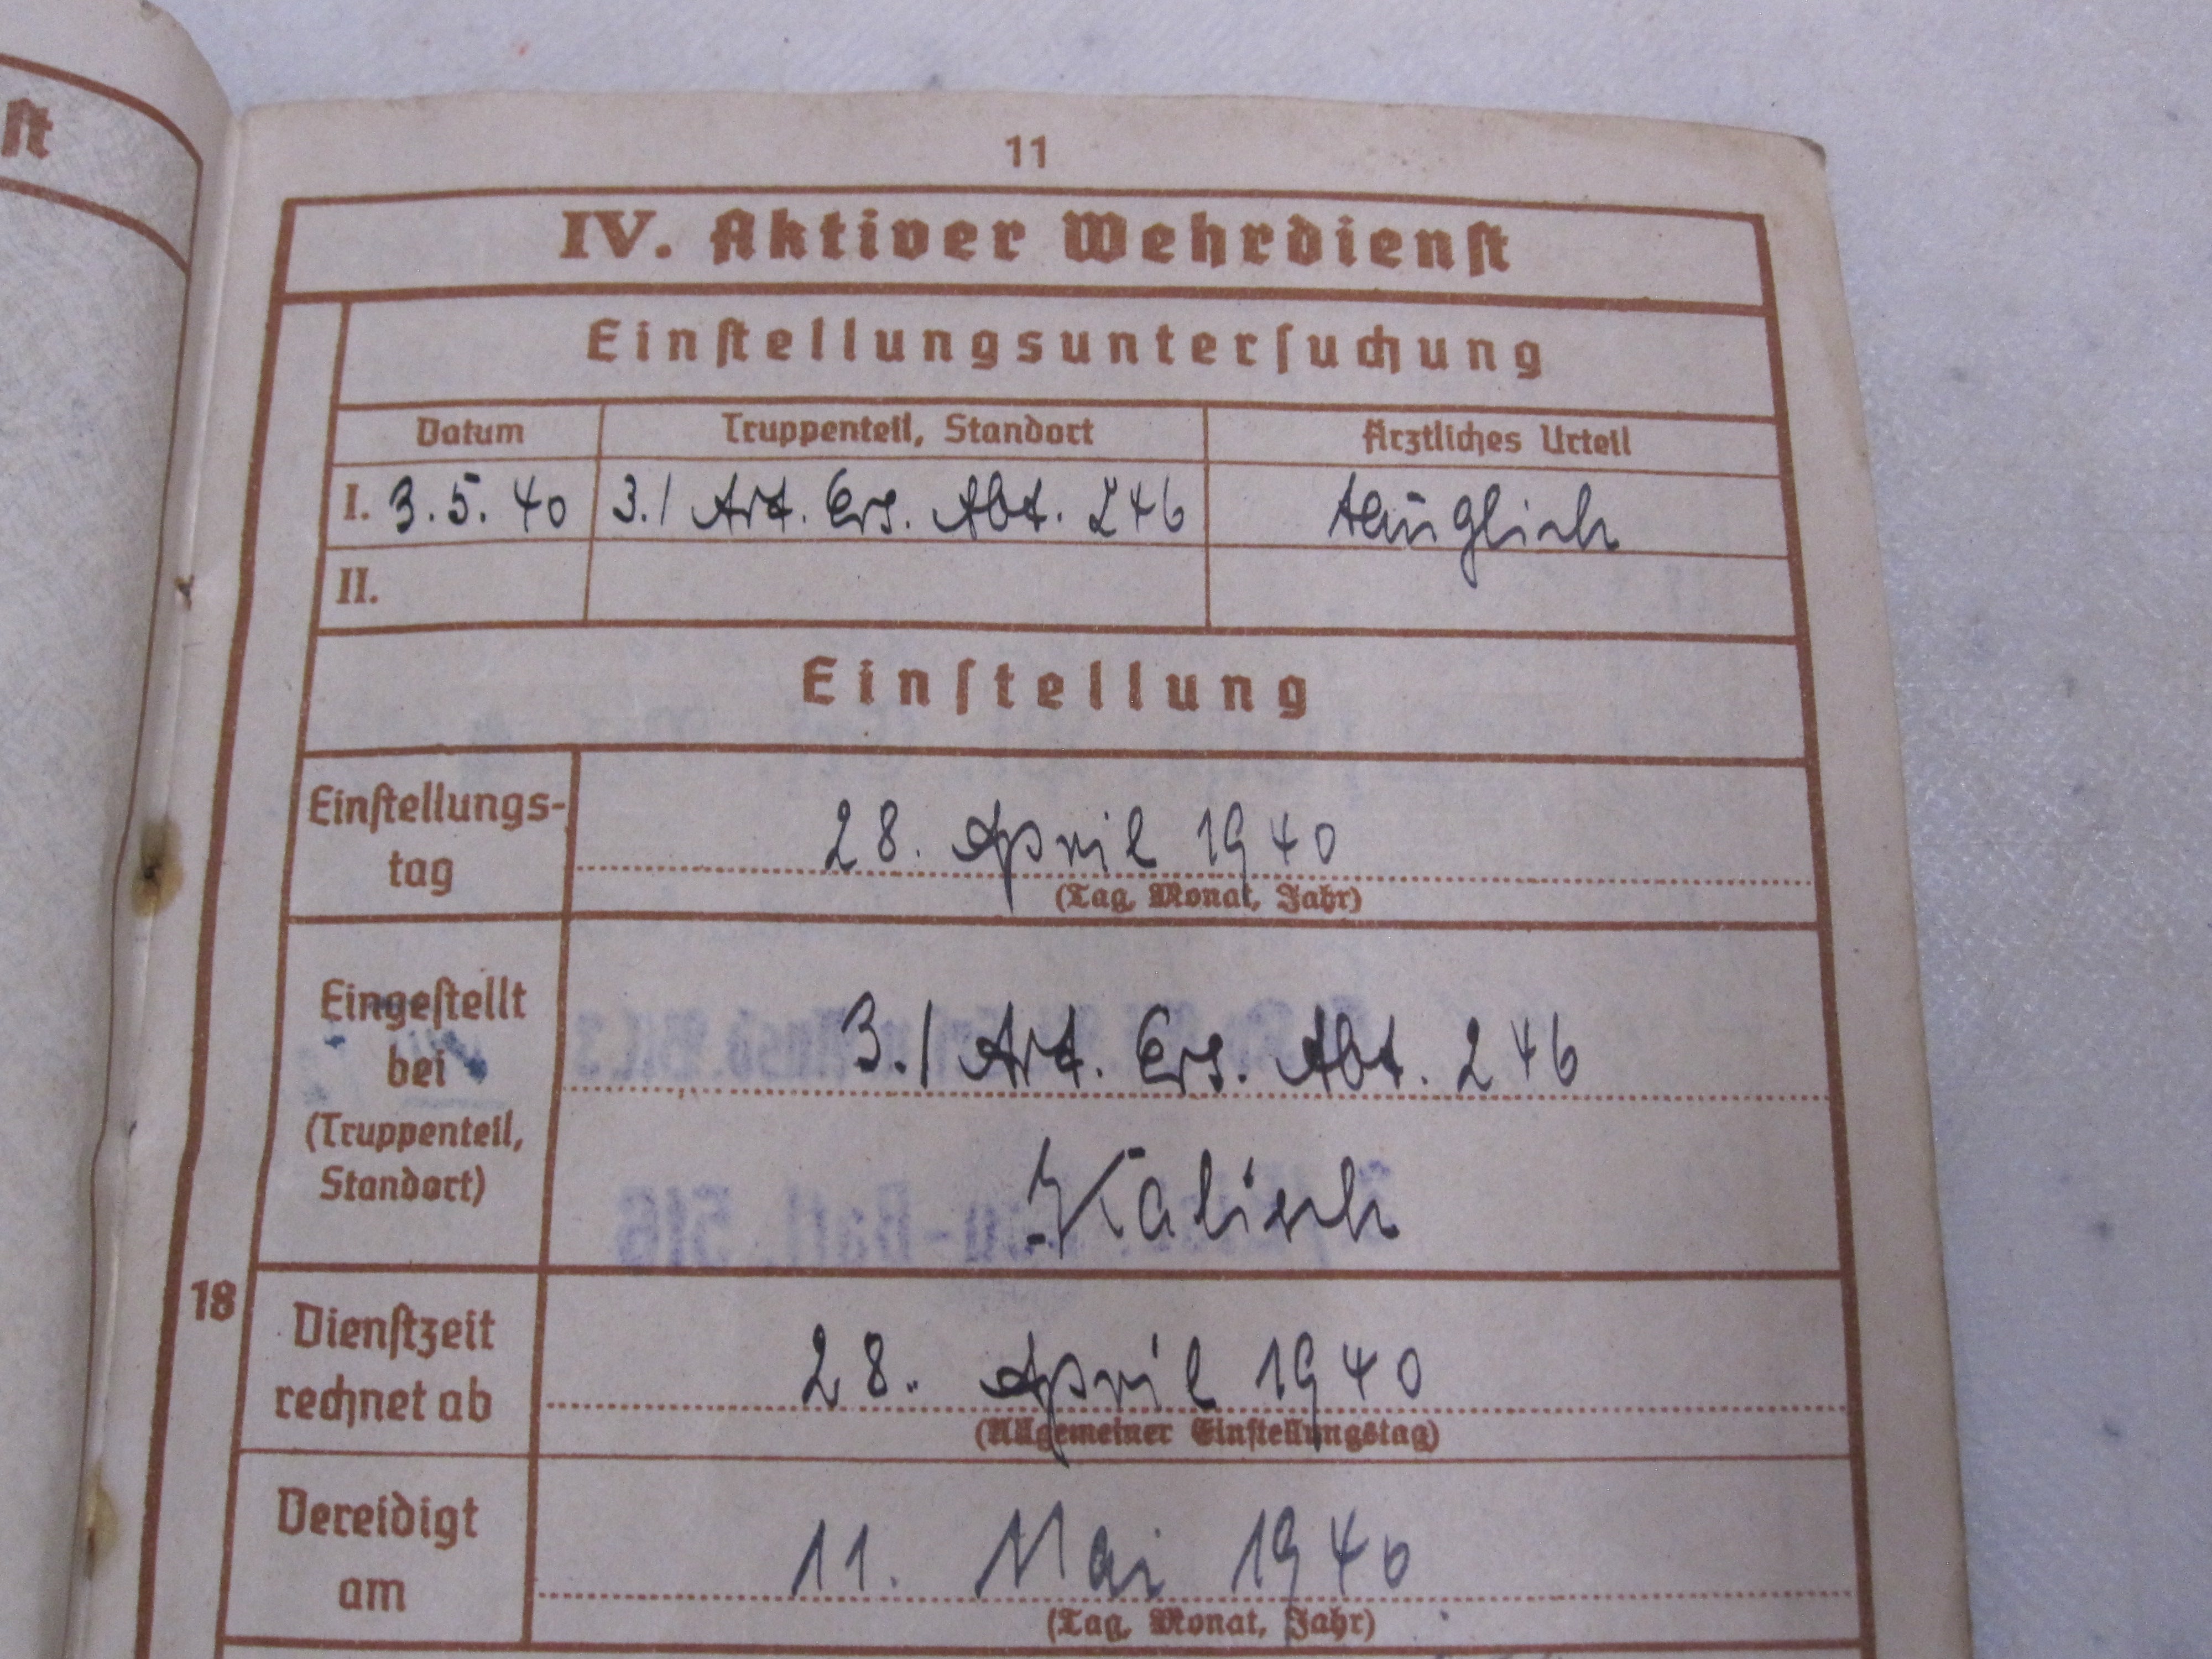 ſt
11
IV. Aktiver Wehrdienſt
Einſtellungsunterſuchung
Datum Truppenteil, Standort Ärztliches Urteil
I. 3.5.40 3./ Art. Ers. Abt. 246 tauglich
II.
Einſtellung
Einſtellungs-
tag
28. April 1940
(Tag, Monat, Jahr)
Eingeſtellt
bei
(Truppenteil,
Standort)
3./ Art. Ers. Abt. 246
Kalisch
18
Dienſtzeit
rechnet ab
28. April 1940
(Allgemeiner Einſtellungstag)
Vereidigt
am
11. Mai 1940
(Tag, Monat, Jahr)